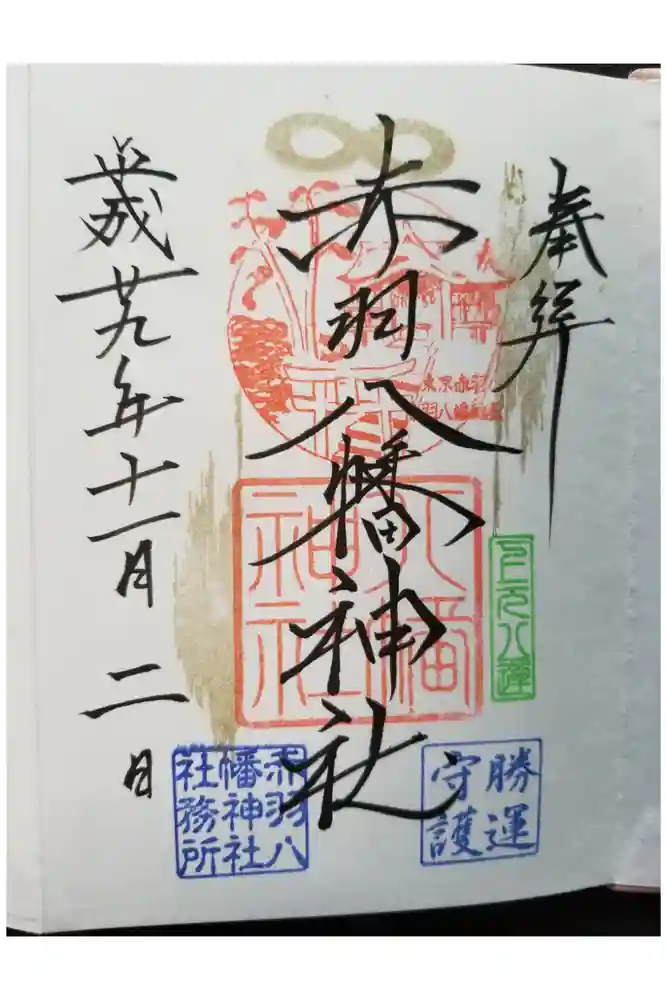 奉拝
赤羽八幡神社
平成廿九年十一月二日
東京赤羽
赤羽八幡神社
八幡
神社
勝運
守護
赤羽八
幡神社
社務所